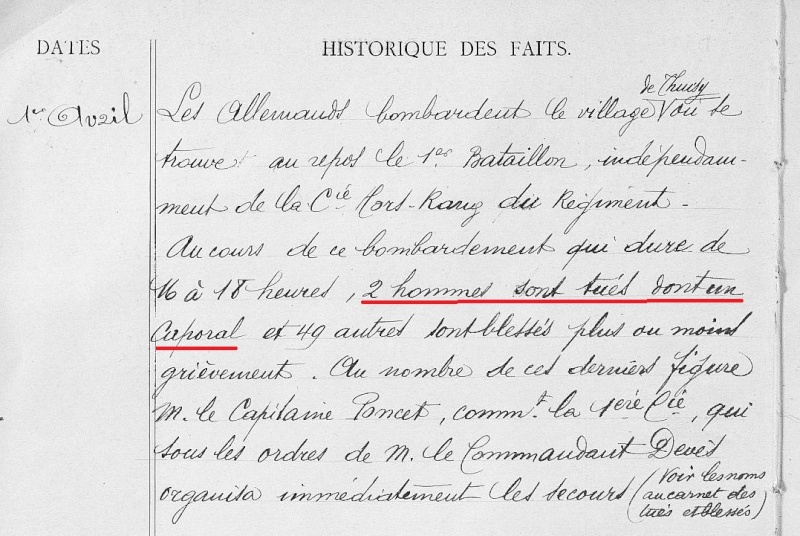 DATES
HISTORIQUE DES FAITS.
de Thuisy
1er Avril
Les Allemands bombardent le village V où se
trouve au repos le 1er Bataillon, indépendam-
ment de la Cie Hors-Rang du Régiment -
Au cours de ce bombardement qui dure de
16 à 18 heures, 2 hommes sont tués dont un
Caporal et 49 autres sont blessés plus ou moins
grièvement. Au nombre de ces derniers figure
M. le Capitaine Poncet, commt la 1ère Cie, qui
sous les ordres de M. le Commandant Devès
organisa immédiatement les secours (Voir les noms
au carnet des
tués et blessés)